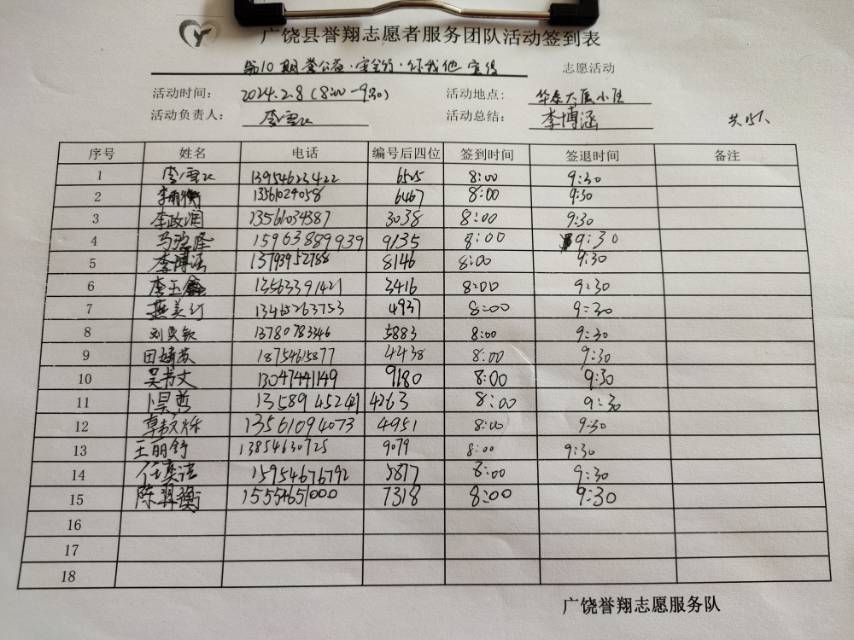 广饶县誉翔志愿者服务团队活动签到表
第10期誉公益·安全行·你我他宣传 志愿活动
活动时间: 2024.2.8 (8:00-9:30) 活动地点: 华泰大厦小区
活动负责人: 李雪 活动总结: 李博涵 共15人
序号 姓名 电话 编号后四位 签到时间 签退时间 备注
1 李雪 13954623422 6525 8:00 9:30
2 李 衡 13561029058 6467 8:00 9:30
3 李政润 13561034387 3038 8:00 9:30
4 马 隆 15963889939 9135 8:00 9:30
5 李博涵 13793952788 8146 8:00 9:30
6 李玉鑫 13563391421 3416 8:00 9:30
7 燕美行 13465263753 4937 8:00 9:30
8 刘 13780783346 5883 8:00 9:30
9 田 18754615877 4438 8:00 9:30
10 吴书文 13047441149 9180 8:00 9:30
11 昊哲 13589452241 4263 8:00 9:30
12 13561094073 4951 8:00 9:30
13 王丽舒 13854630725 9079 8:00 9:30
14 任奕洁 15954676792 5877 8:00 9:30
15 陈羿衡 15554651000 7318 8:00 9:30
16
17
18
广饶誉翔志愿服务队